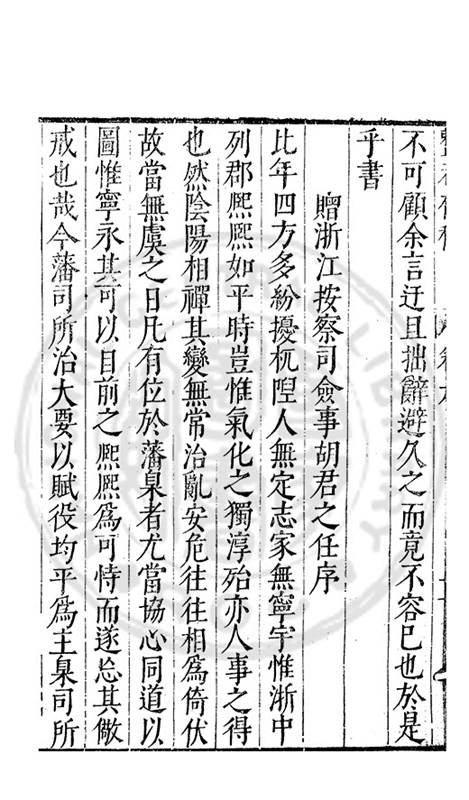 不可顧余言迂且拙辭避久之而竟不容已也於是
乎書
贈浙江按察司僉事胡君之任序
比年四方多紛擾杌隉人無定志家無寧宇惟浙中
列郡熈熈如平時豈惟氣化之獨淳殆亦人事之得
也然陰陽相禪其變無常治亂安危往往相爲倚伏
故當無虞之日凡有位於藩臬者尤當協心同道以
圖惟寧永其可以目前之熈熈爲可恃而遂忘其儆
戒也哉今藩司所治大要以賦役均平爲主臬司所